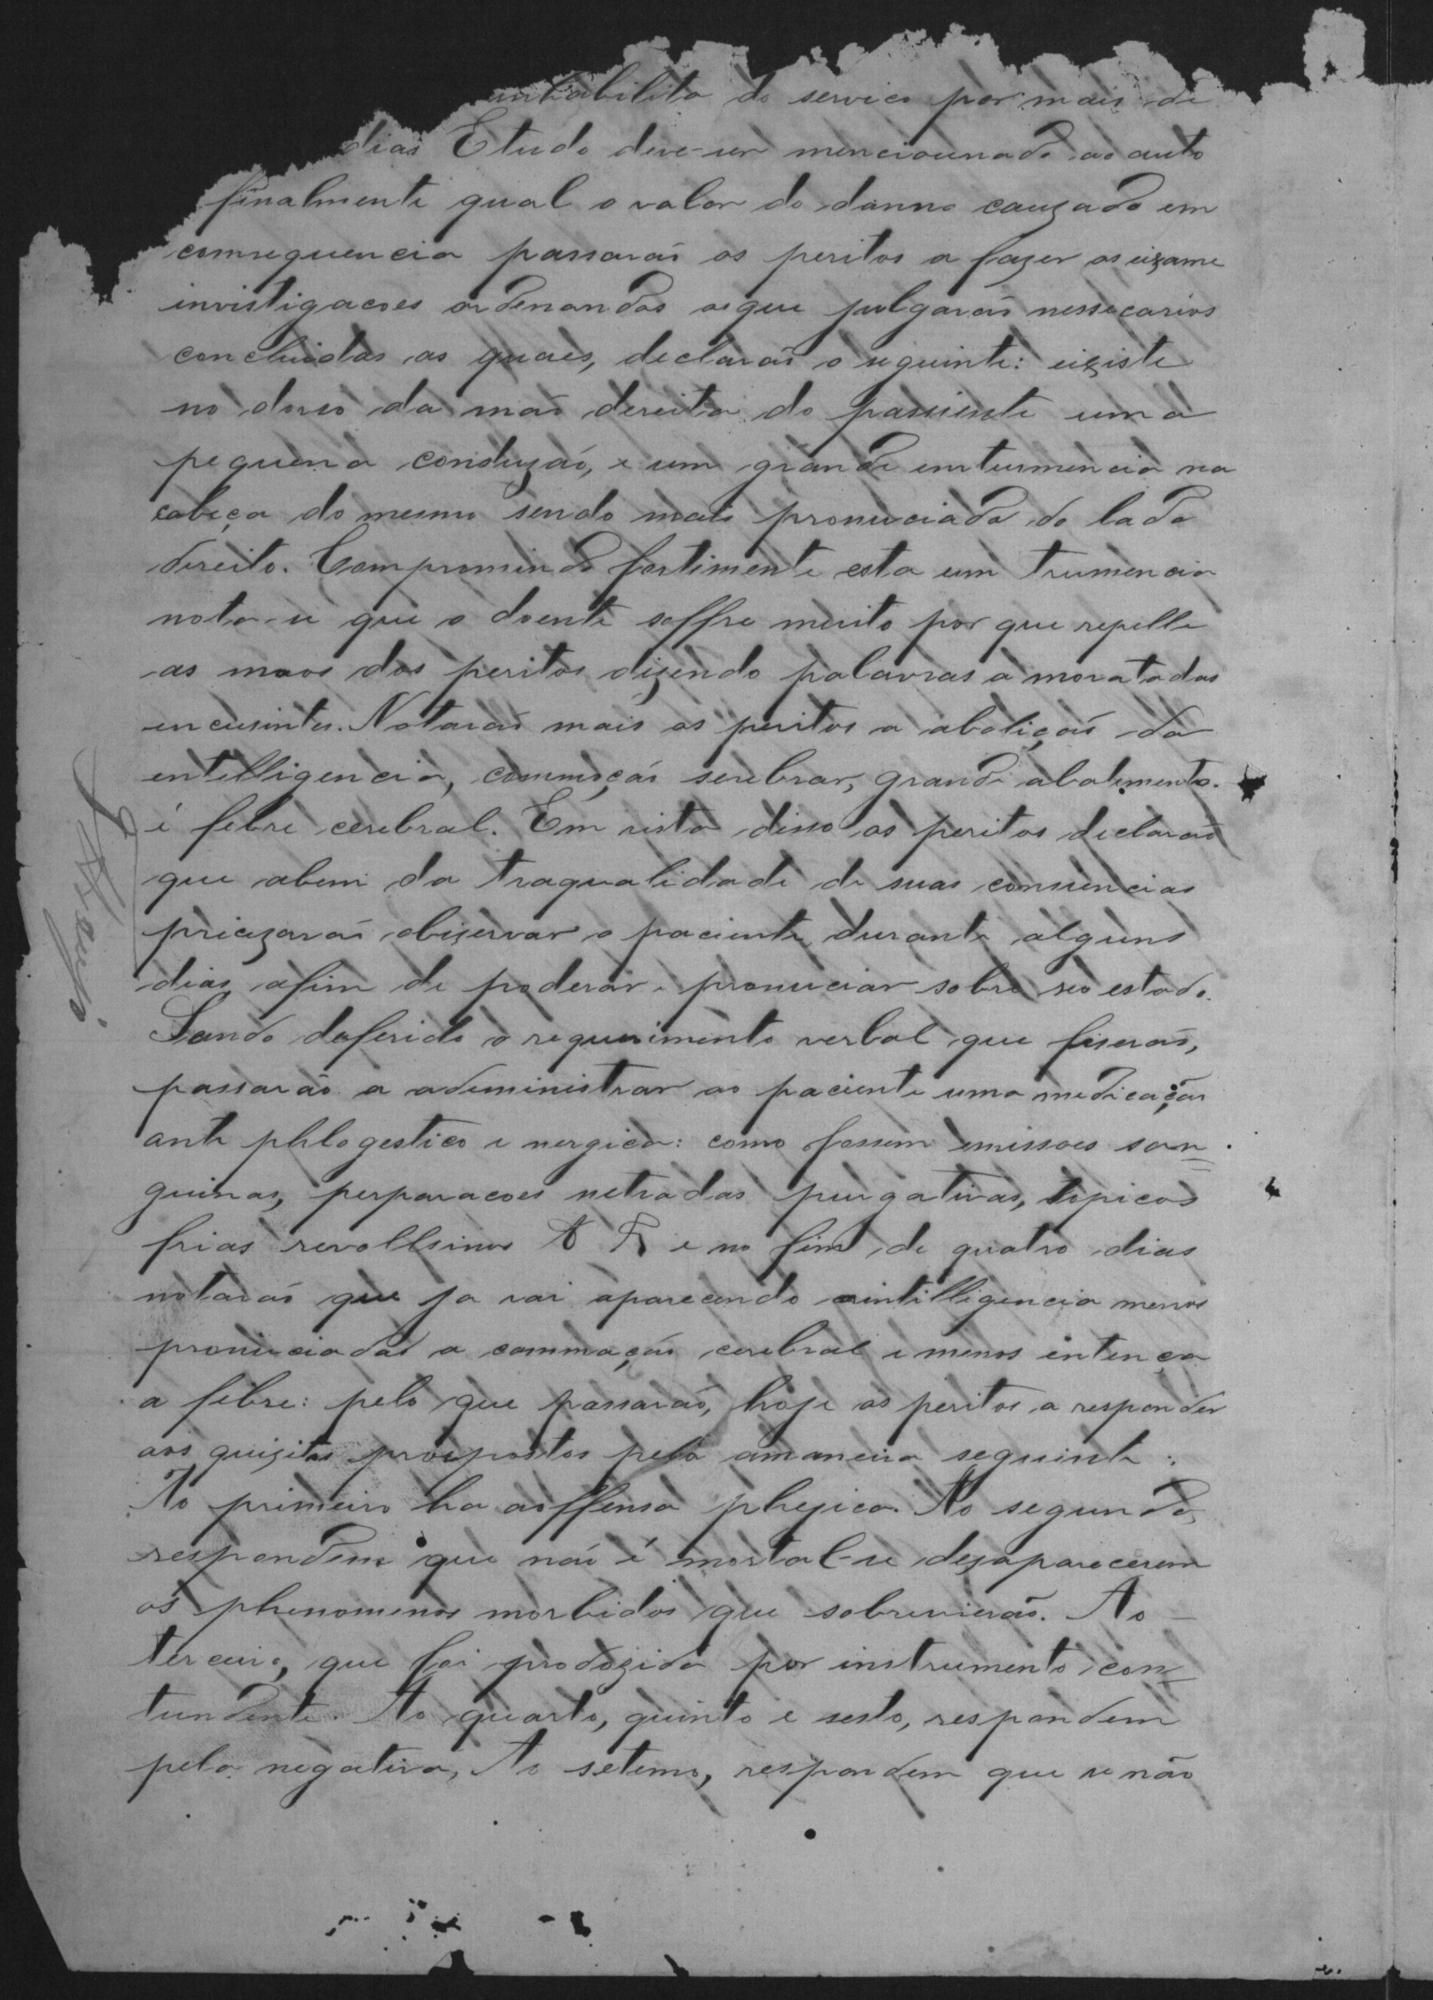 inhabilita do servico por mais de
dias E tudo deve-ser mencionnado ao auto
finalmente qual o valor do danno cauzado em
comsequencia passaraõ os peritos a fazer os eizame
investigacoes ordenandas oeque julgaraõ nessecarios
concluidas as quaes, declaraõ o seguinte: eiziste
no dorso da maõ dereita do passiente uma
pequena conduzaõ, e um grande emturmencia na
cabeça do mesmo sendo mais pronuciada do lado
direito. Compromindo fortimente esta um trumencia
nota-se que o doente soffre muito por que repelle
as maos dos peritos dizendo palavras a moratadas
encusintes. Notaraõ mais os peritos a aboliçaõ da
entelligencia, commoçaõ serebrar, grande abatemento.
é febre cerebral. Em vista disso os peritos declaraõ
que abem da traqualidade de suas consciencias
pricizaraõ obizervar o paciente durante alguns
dias afim de poderar pronuciar sobre seo estado.
Sendo deferido o requerimento verbal que fiseraõ,
passaraõ a adeministrar ao paciente uma medicaçaõ
ante phlogestico e nergica: como fossem emissoes san=
guinas, perparacoes netradas purgativas, topicos
frias revollsinos & & e no fim de quatro dias
notaraõ que ja vai aparecendo aintilligencia menos
pronuciadas a commaçaõ cerebral e menos entença
a febre: pelo que passaraõ, hoje os peritos a responder
aos quizitos prospostos pela amaneira seguinte:
Ao primeiro ha aoffensa physica. Ao segundo,
respondem que naõ é mortal-se dezaparecerem
os phenomenos morbidos que sobrevieraõ. Ao
terceiro, que foi prodozida por instrumento con-
tundente. Ao quarto, quinto e sesto, respondem
pela negativa, Ao setemo, respondem que se não
Araujo